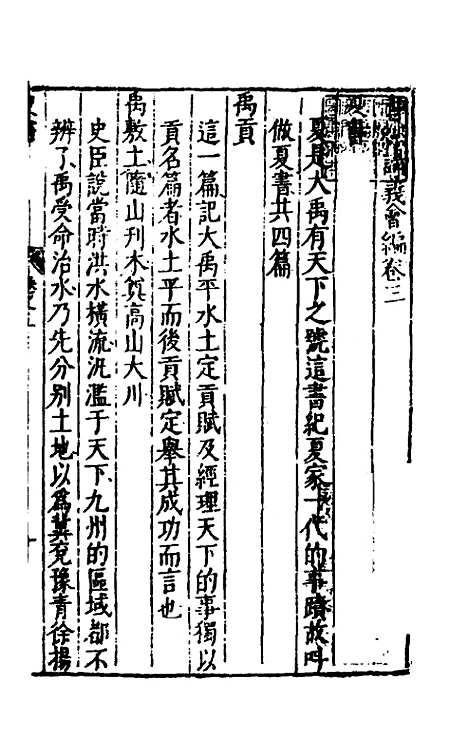 書經講義會編卷三
夏書
夏是大禹有天下之號這書紀夏家一代的事蹟故叫
做夏書共四篇
禹貢
這一篇記大禹平水土定貢賦及經理天下的事獨以
貢名篇者水土平而後貢賦定舉其成功而言也
禹敷土隨山刋木奠高山大川
史臣說當時洪水橫流汎濫于天下九州的區域都不
辨了禹受命治水乃先分别土地以爲冀兗豫青徐揚